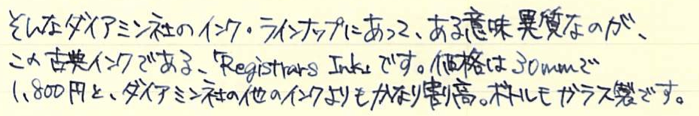 そんなダイアミン社のインク・ラインナップにあって、ある意味異質なのが、
この古典インクである、「Registrars Ink」です。価格は30mmで
1,800円と、ダイアミン社の他のインクよりもかなり割高。ボトルもガラス製です。